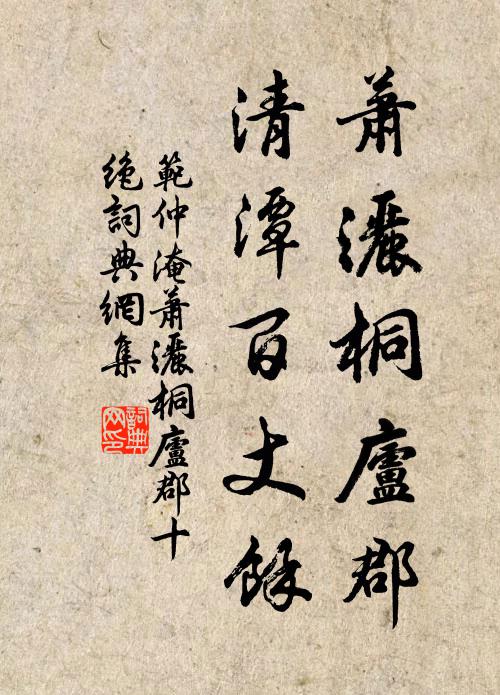 蕭灑桐廬郡
清潭百丈餘
範仲淹蕭灑桐廬郡十
绝詞典網集
詞典
网印